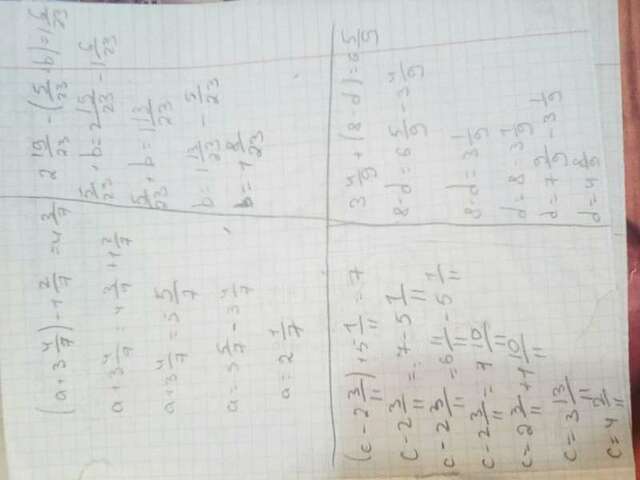 (a+3 4/7)-1 2/7=4 3/7
a+3 4/7=4 3/7+1 2/7
a+3 4/7=5 5/7
a=5 5/7-3 4/7
a=2 1/7
2 19/23-(5/23+b)=1 6/23
5/23+b=2 19/23-1 6/23
5/23+b=1 13/23
b=1 13/23-5/23
b=1 8/23
(c-2 3/11)+5 1/11=7
c-2 3/11=7-5 1/11
c-2 3/11=6 11/11-5 1/11
c-2 3/11=1 10/11
c=2 3/11+1 10/11
c=3 13/11
c=4 2/11
3 4/9+(8-d)=6 5/9
8-d=6 5/9-3 4/9
8-d=3 1/9
d=8-3 1/9
d=7 9/9-3 1/9
d=4 8/9